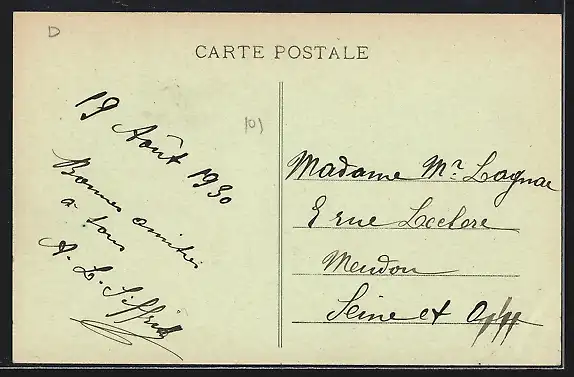 D
CARTE POSTALE
101
19 Août 1930
Bonnes amitiés
a tous
A. L. Siffrid
Madame Mr. Lagnac
rue Leclere
Meudon
Seine et